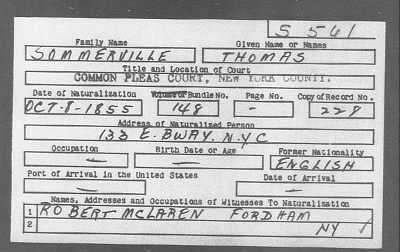 S 561
Family Name Given Name or Names
SOMMERVILLE THOMAS
Title and Location of Court
COMMON PLEAS COURT, NEW YORK COUNTY.
Date of Naturalization Volume or Bundle No. Page No. Copy of Record No.
OCT-8-1855 148 - 228
Address of Naturalized Person
133 E. BWAY. N.Y.C
Occupation Birth Date or Age Former Nationality
— — ENGLISH
Port of Arrival in the United States Date of Arrival
— —
Names, Addresses and Occupations of Witnesses To Naturalization
1 ROBERT MCLAREN FORDHAM
2 NY